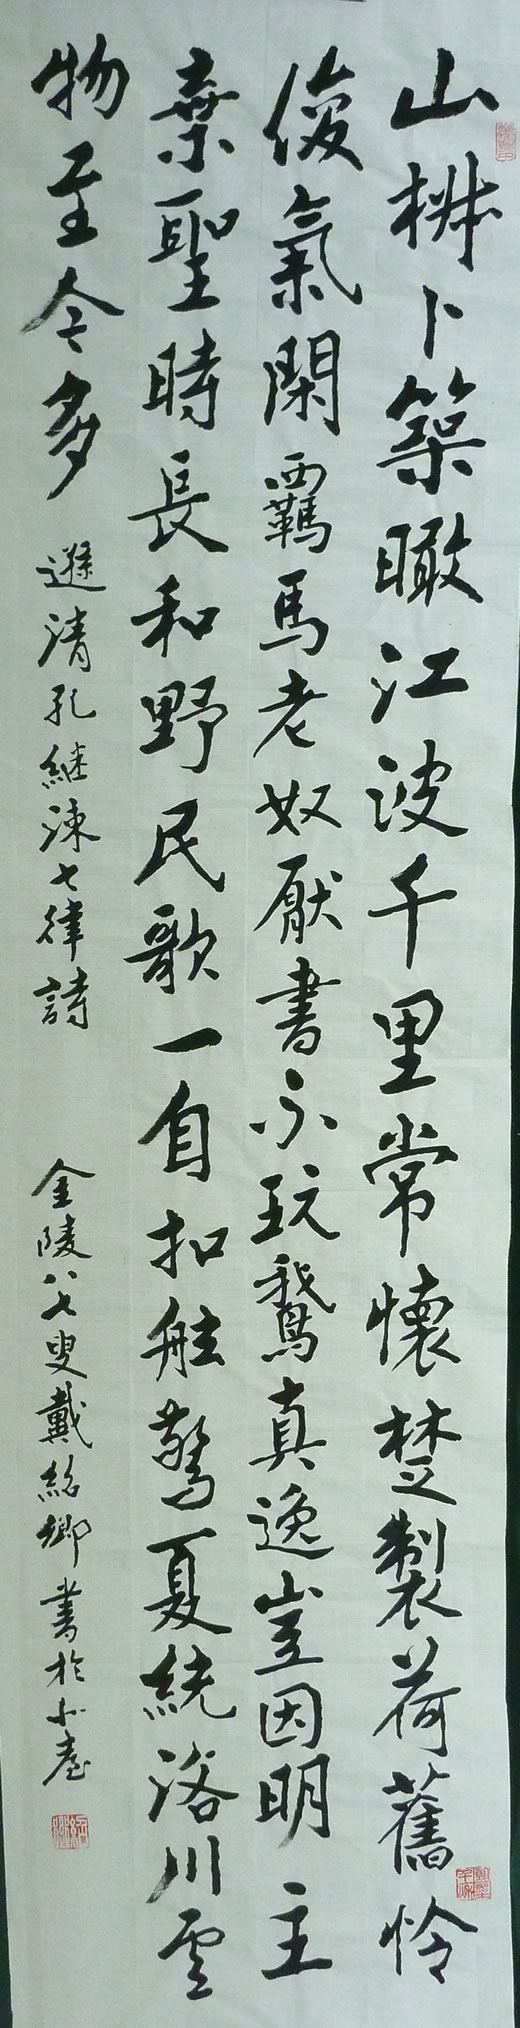 山椒卜築瞰江波千里常懷楚製荷舊怜
俊氣閑羈馬老奴厭書不玩鵝真逸豈因明主
棄聖時長和野民歌一自扣舷驚夏統洛川雲
物至今多 遜清孔繼涑七律詩 金陵八七叟戴紹卿書於小臺